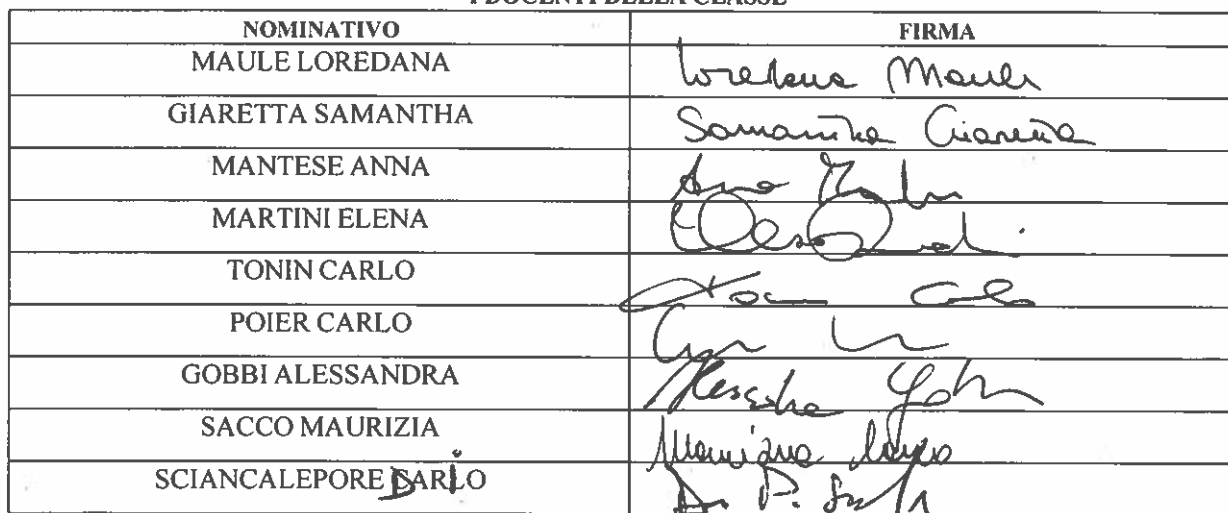 I DOCENTI DELLA CLASSE
NOMINATIVO FIRMA
MAULE LOREDANA Loredana Maule
GIARETTA SAMANTHA Samantha Giaretta
MANTESE ANNA Anna
MARTINI ELENA Elena
TONIN CARLO Tonin Carlo
POIER CARLO
GOBBI ALESSANDRA Alessandra Gobbi
SACCO MAURIZIA Maurizia Sacco
SCIANCALEPORE